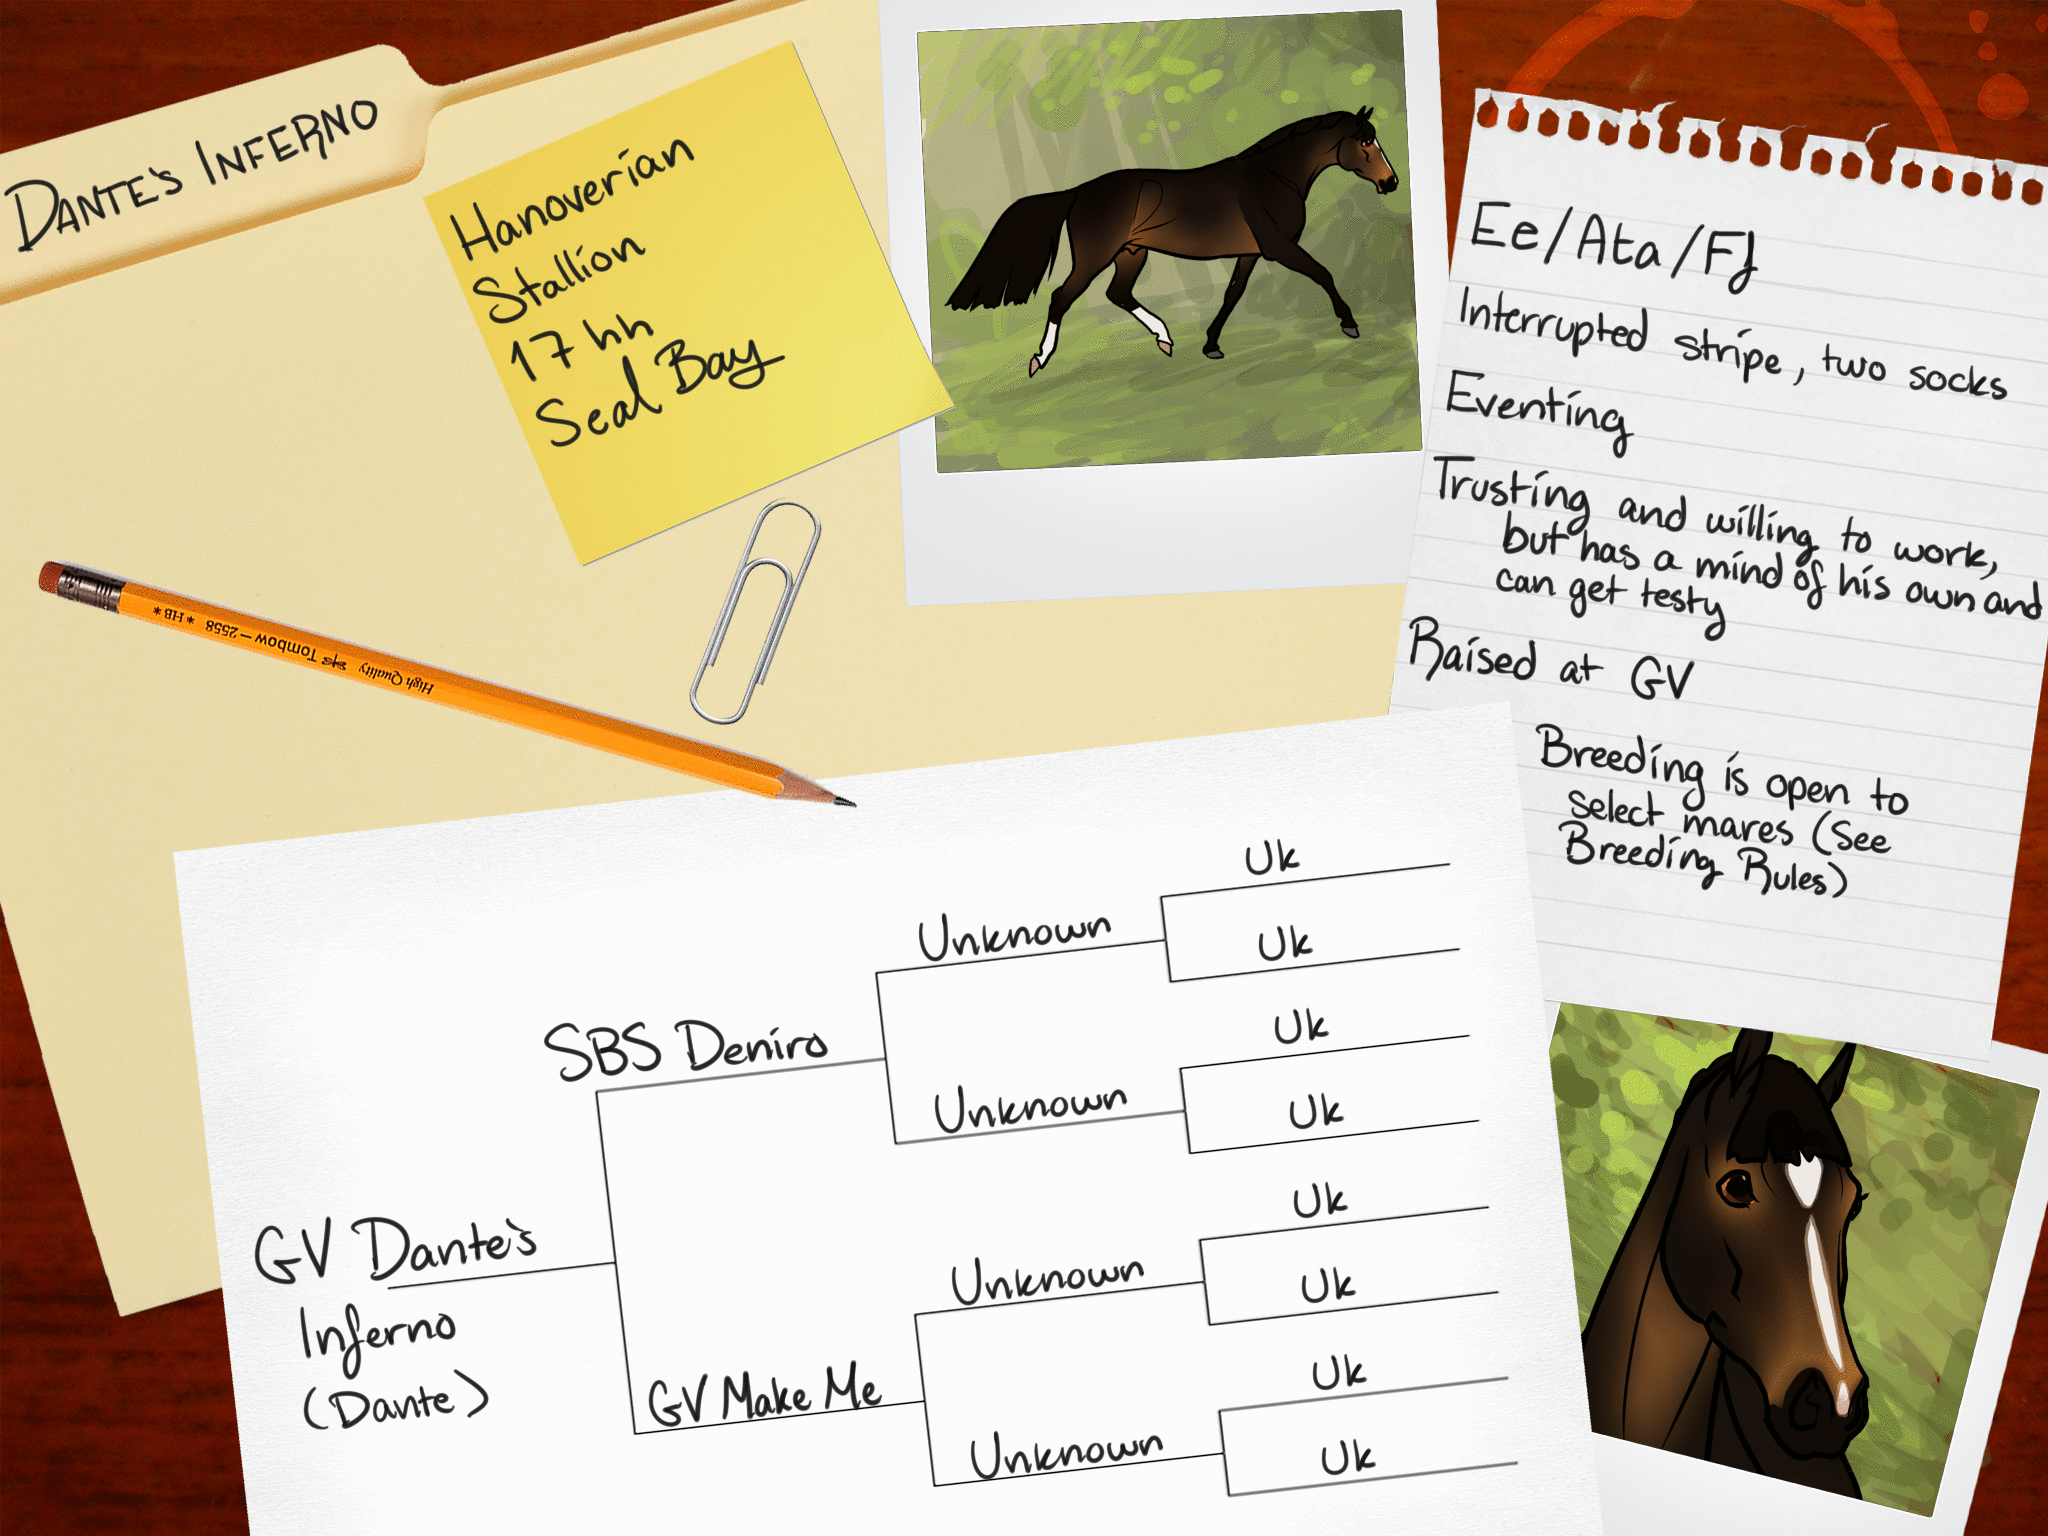 DANTE'S INFERNO
Hanoverian
Stallion
17 hh
Seal Bay
Ee/Ata/Ff
Interrupted stripe, two socks
Eventing
Trusting and willing to work,
but has a mind of his own and
can get testy
Raised at GV
Breeding is open to
select mares (See
Breeding Rules)
High Quality Tombow — 2558 * HB *
Uk
Unknown
Uk
SBS Deniro
Uk
Unknown
Uk
GV Dante's
Inferno
(Dante)
Uk
Unknown
Uk
GV Make Me
Uk
Unknown
Uk